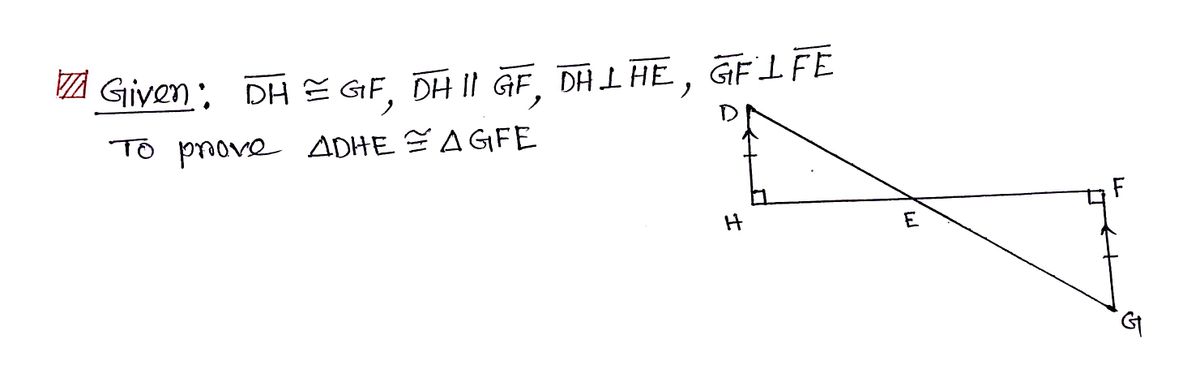 Given: D̅H̅ ≅ GF, D̅H̅ || G̅F̅, D̅H̅ ⊥ H̅E̅, G̅F̅ ⊥ F̅E̅
To prove ΔDHE ≅ ΔGFE
D
F
H
E
G